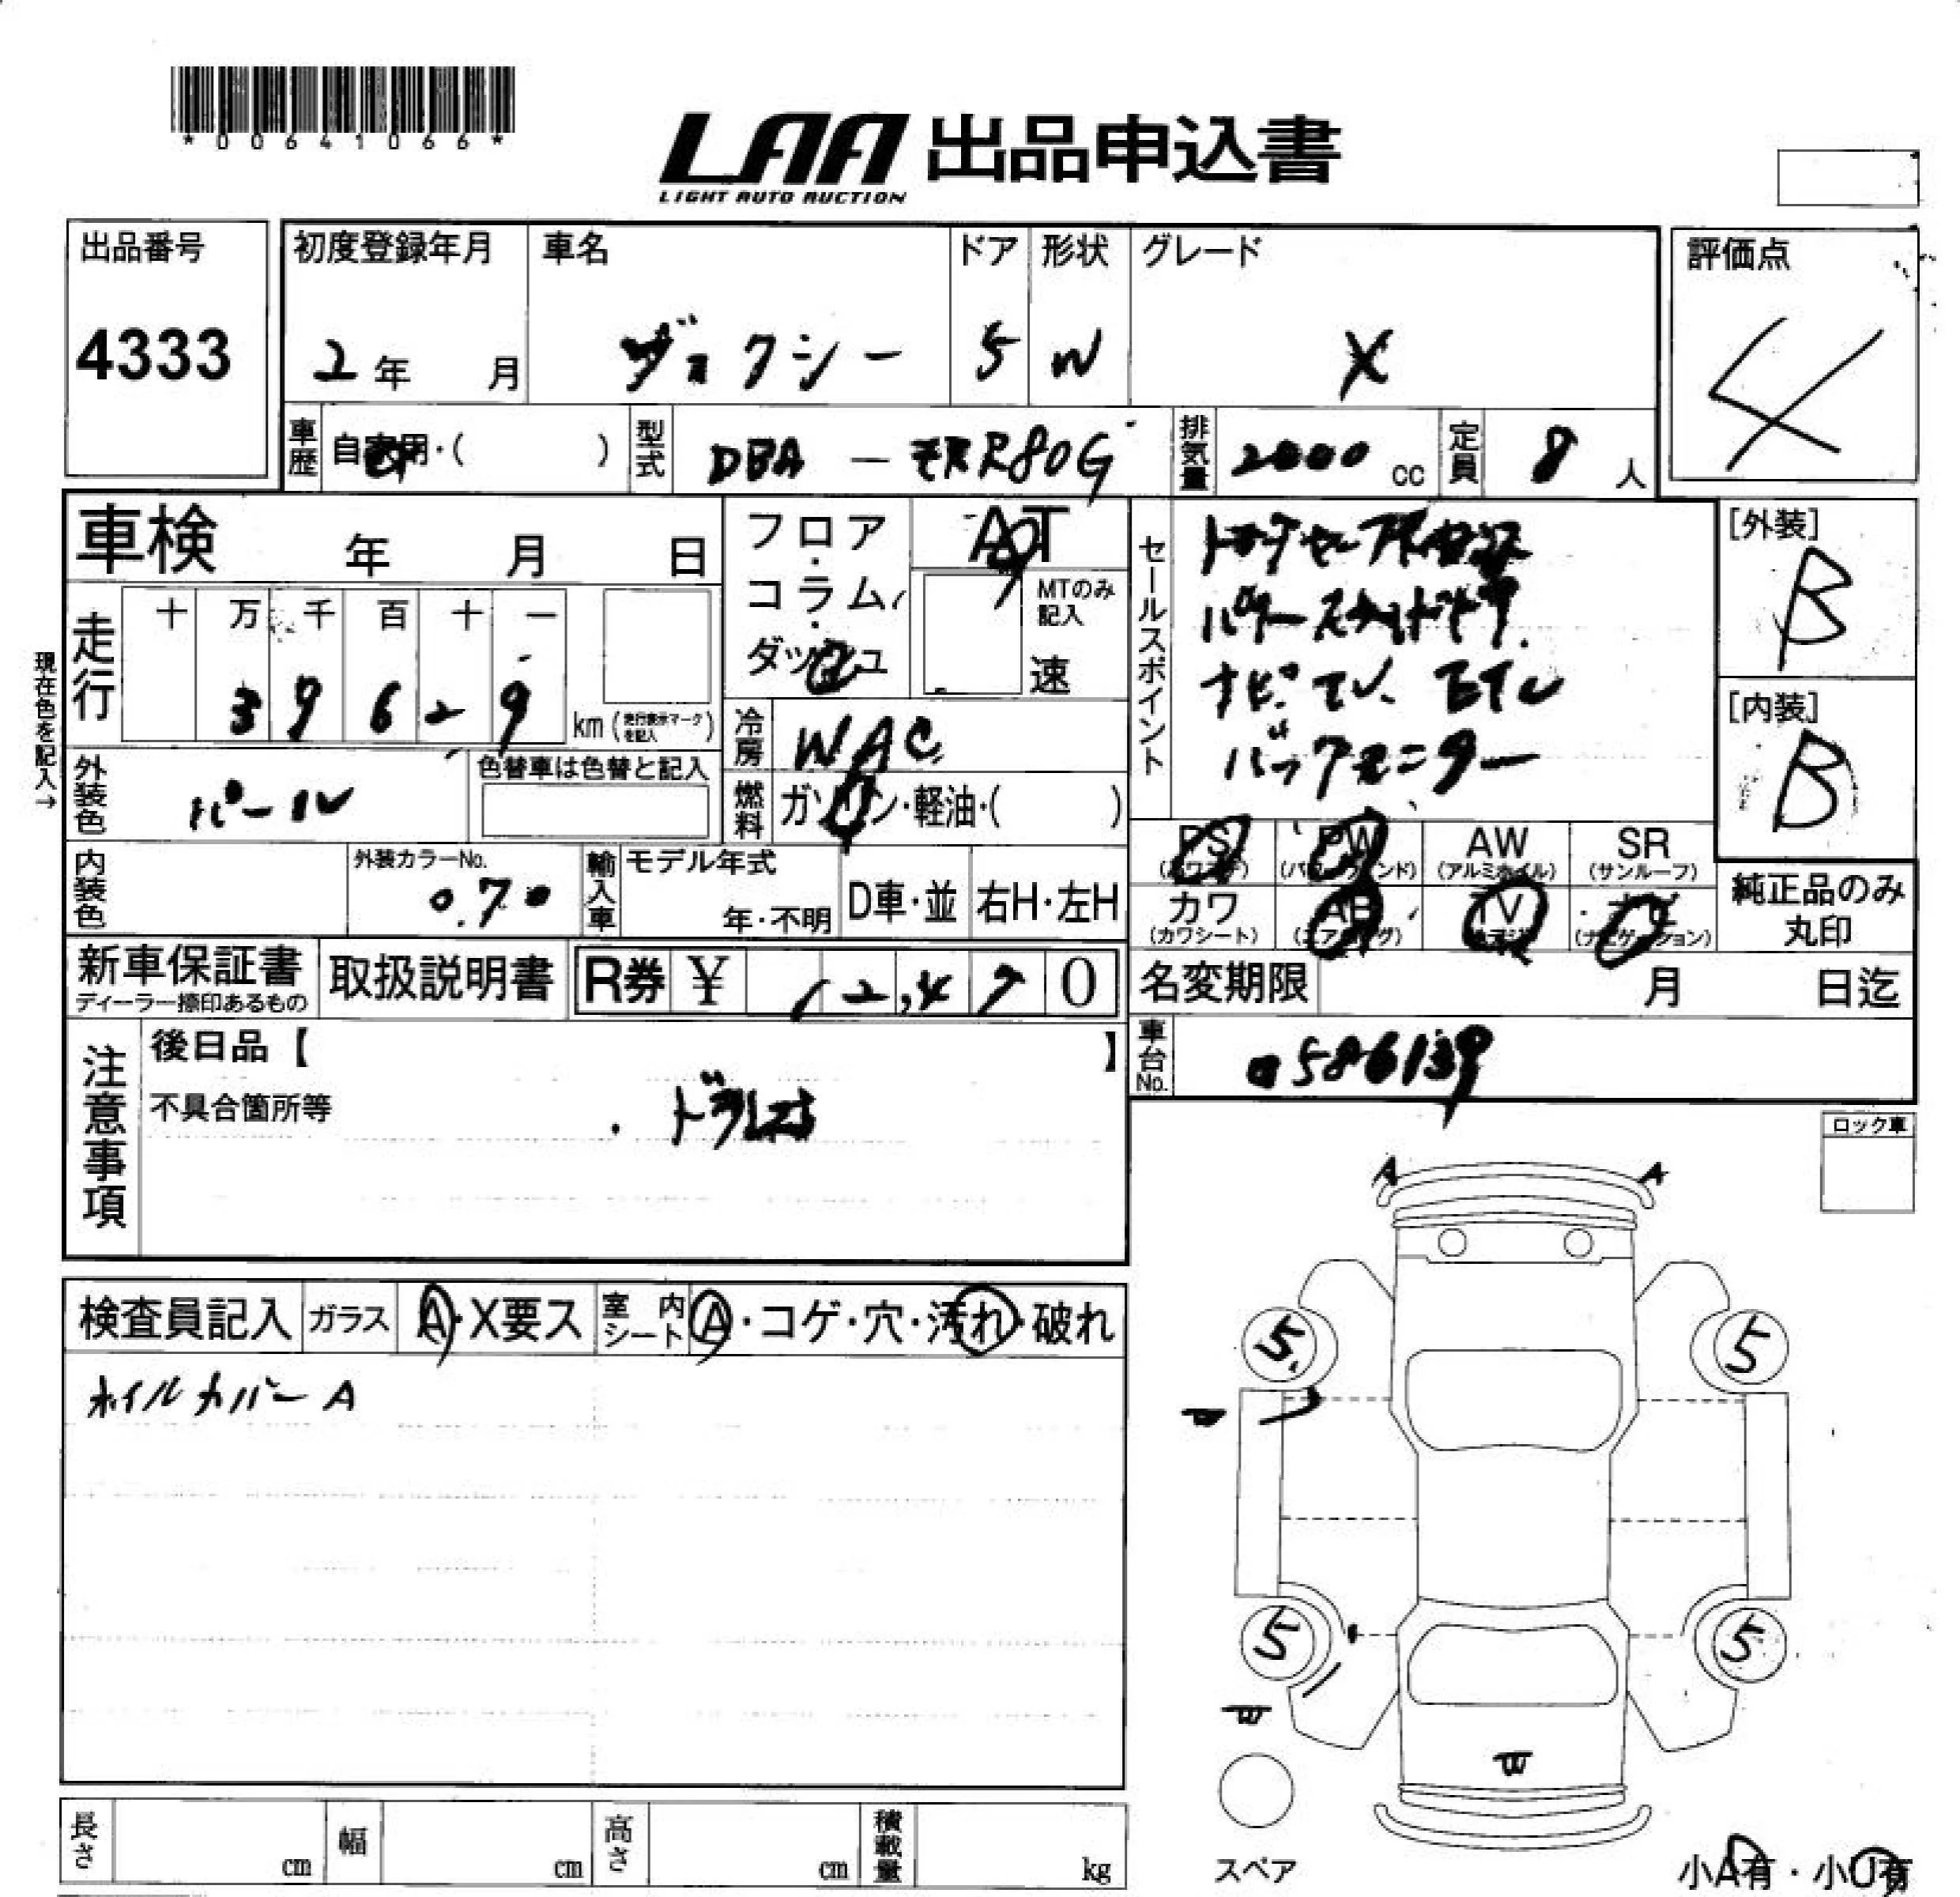 *00641066*
LAA 出品申込書
LIGHT AUTO AUCTION
出品番号 初度登録年月 車名 ドア 形状 グレード 評価点
4333 2年 月 ヴォクシー 5 W X 4
車歴 自家用・( ) 型式 DBA - ZRR80G 排気量 2000 cc 定員 8 人
車検 年 月 日 フロア・コラム・ダッシュ AT
MTのみ記入 速
セールスポイント
パワースライドドア
ナビ TV ETC
バックモニター
[外装] B
[内装] B
現在色を記入→
走行 十 万 千 百 十 一
3 9 6 2 9 km (走行表示マークを記入)
冷房 WAC
外装色 パール 色替車は色替と記入 燃料 ガソリン・軽油・( )
PS (パワステ) PW (パワーウィンド) AW (アルミホイル) SR (サンルーフ)
カワ (カワシート) AB (エアバッグ) TV (テレビ) ナビ (ナビゲーション) 純正品のみ丸印
内装色 外装カラーNo. 070 輸入車 モデル年式 年・不明 D車・並 右H・左H
新車保証書 ディーラー捺印あるもの 取扱説明書 R券 ¥ 12,490 名変期限 月 日迄
車台No. 0586139
注意事項 後日品【 】
不具合箇所等 ドラレコ
ロック車
A A
検査員記入 ガラス A・X要ス 室内シート A・コゲ・穴・汚れ・破れ
ホイルカバーA
5 5
5 5
W
W
W
長さ cm 幅 cm 高さ cm 積載量 kg
スペア 小A有・小U有